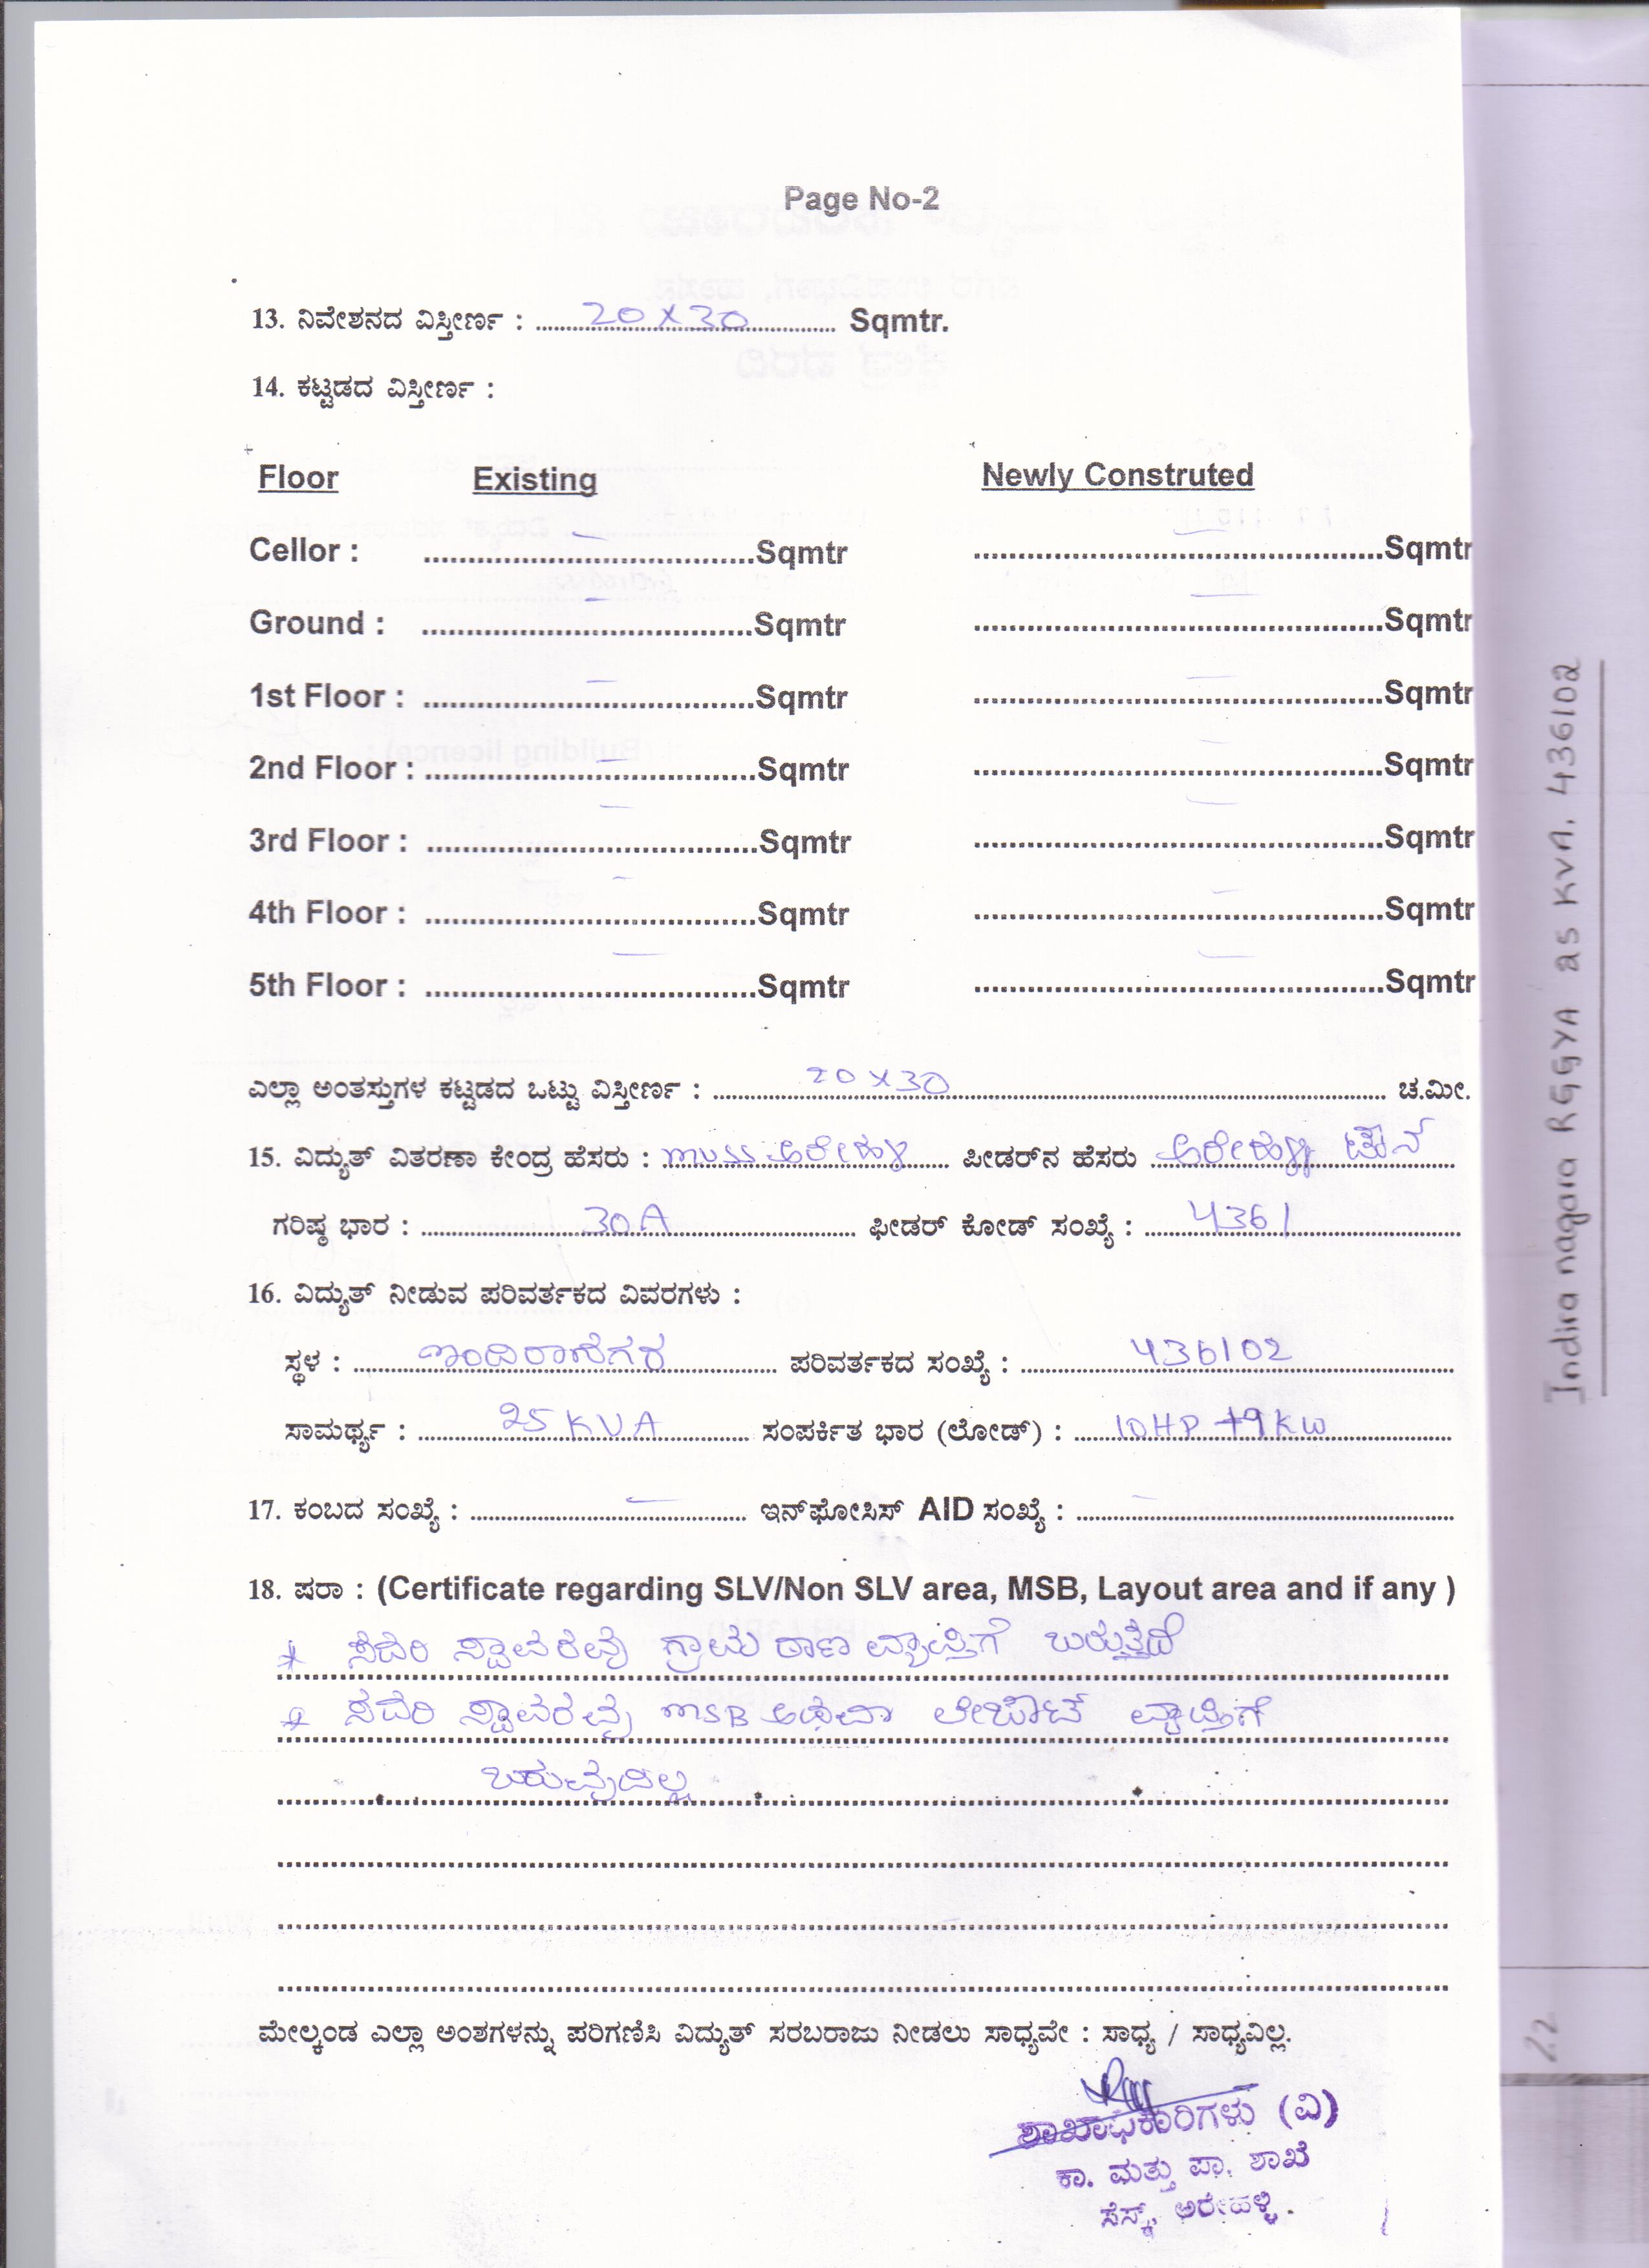 Page No-2
13. ನಿವೇಶನದ ವಿಸ್ತೀರ್ಣ : 20 X 30 Sqmtr.
14. ಕಟ್ಟಡದ ವಿಸ್ತೀರ್ಣ :
Floor Existing Newly Construted
Cellor : - Sqmtr - Sqmtr
Ground : - Sqmtr - Sqmtr
1st Floor : - Sqmtr - Sqmtr
2nd Floor : - Sqmtr - Sqmtr
3rd Floor : - Sqmtr - Sqmtr
4th Floor : - Sqmtr - Sqmtr
5th Floor : - Sqmtr - Sqmtr
ಎಲ್ಲಾ ಅಂತಸ್ತುಗಳ ಕಟ್ಟಡದ ಒಟ್ಟು ವಿಸ್ತೀರ್ಣ : 20 X 30 ಚ.ಮೀ.
15. ವಿದ್ಯುತ್ ವಿತರಣಾ ಕೇಂದ್ರ ಹೆಸರು : muss ಅರೇಹಳ್ಳಿ ಪೀಡರ್‌ನ ಹೆಸರು ಅರೇಹಳ್ಳಿ ಟೌನ್
ಗರಿಷ್ಠ ಭಾರ : 30A ಫೀಡರ್ ಕೋಡ್ ಸಂಖ್ಯೆ : 4361
16. ವಿದ್ಯುತ್ ನೀಡುವ ಪರಿವರ್ತಕದ ವಿವರಗಳು :
ಸ್ಥಳ : ಇಂದಿರಾನಗರ ಪರಿವರ್ತಕದ ಸಂಖ್ಯೆ : 436102
ಸಾಮರ್ಥ್ಯ : 25 KVA ಸಂಪರ್ಕಿತ ಭಾರ (ಲೋಡ್) : 10HP +9KW
17. ಕಂಬದ ಸಂಖ್ಯೆ : - ಇನ್‌ಫೋಸಿಸ್ AID ಸಂಖ್ಯೆ : -
18. ಷರಾ : (Certificate regarding SLV/Non SLV area, MSB, Layout area and if any )
* ಸದರಿ ಸ್ಥಾವರವು ಗ್ರಾಮ ಠಾಣ ವ್ಯಾಪ್ತಿಗೆ ಬರುತ್ತದೆ
* ಸದರಿ ಸ್ಥಾವರವು MSB ಅಥವಾ ಲೇಔಟ್ ವ್ಯಾಪ್ತಿಗೆ
ಬರುವುದಿಲ್ಲ
ಮೇಲ್ಕಂಡ ಎಲ್ಲಾ ಅಂಶಗಳನ್ನು ಪರಿಗಣಿಸಿ ವಿದ್ಯುತ್ ಸರಬರಾಜು ನೀಡಲು ಸಾಧ್ಯವೇ : ಸಾಧ್ಯ / ಸಾಧ್ಯವಿಲ್ಲ.
ಶಾಖಾಧಿಕಾರಿಗಳು (ವಿ)
ಕಾ. ಮತ್ತು ಪಾ. ಶಾಖೆ
ಸೆಸ್ಕ್, ಅರೇಹಳ್ಳಿ.
Indira nagara RGGYA 25 KVA. 436102
22